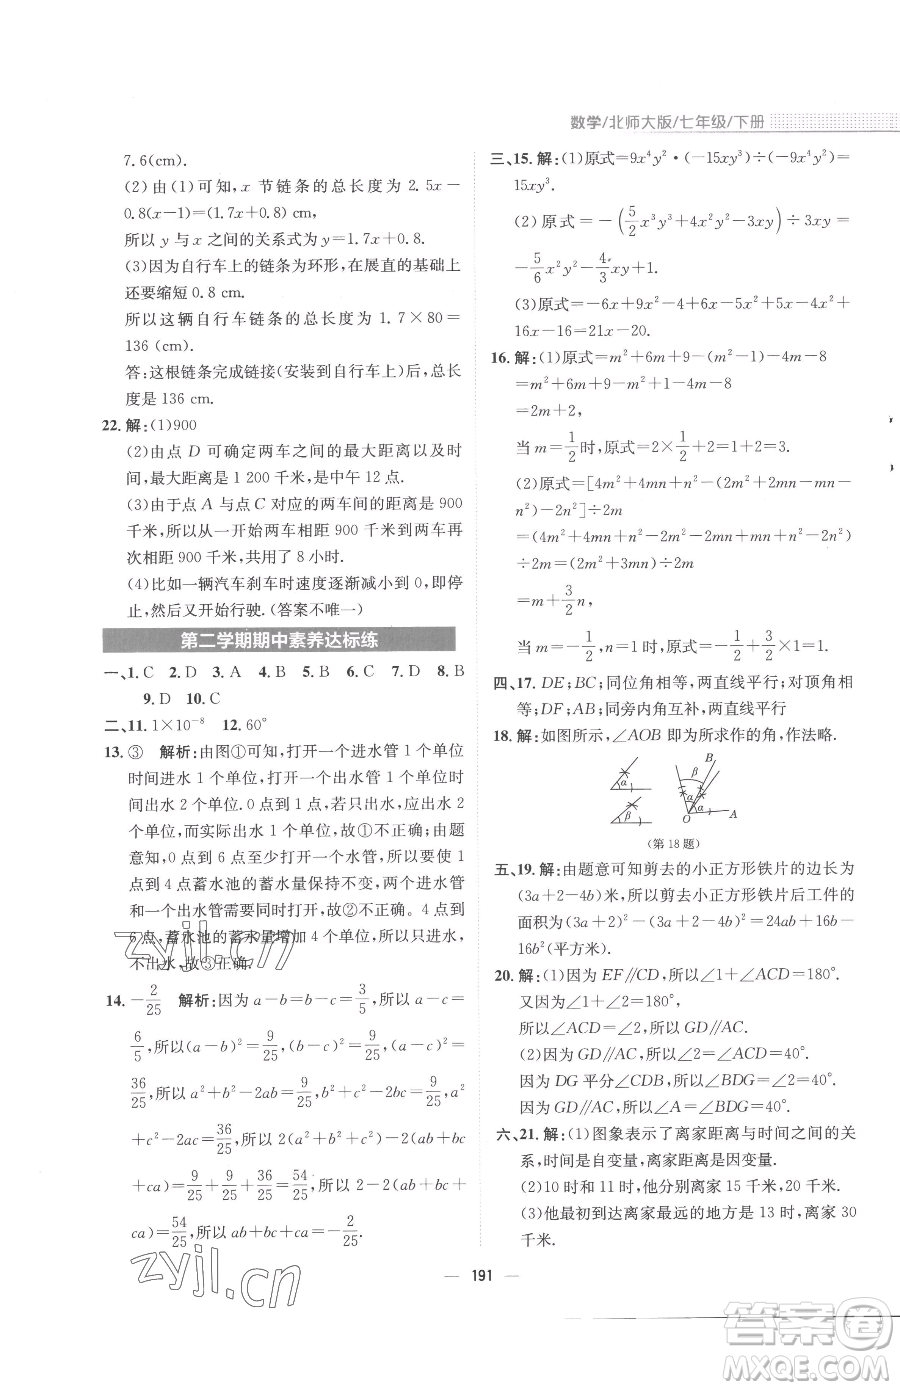 数学/北师大版/七年级/下册
7.6(cm).
(2)由(1)可知,x 节链条的总长度为 2.5x－
0.8(x－1)=(1.7x+0.8)cm,
所以 y 与 x 之间的关系式为 y=1.7x+0.8.
(3)因为自行车上的链条为环形,在展直的基础上
还要缩短 0.8 cm.
所以这辆自行车链条的总长度为 1.7×80=
136 (cm).
答:这根链条完成链接(安装到自行车上)后,总长
度是 136 cm.
22.解:(1)900
(2)由点 D 可确定两车之间的最大距离以及时
间,最大距离是 1 200 千米,是中午 12 点.
(3)由于点 A 与点 C 对应的两车间的距离是 900
千米,所以从一开始两车相距 900 千米到两车再
次相距 900 千米,共用了 8 小时.
(4)比如一辆汽车刹车时速度逐渐减小到 0,即停
止,然后又开始行驶.(答案不唯一)
第二学期期中素养达标练
一、1.C 2.D 3.A 4.B 5.B 6.C 7.D 8.B
9.D 10.C
二、11.1×10⁻⁸ 12.60°
13.③ 解析:由图①可知,打开一个进水管 1 个单位
时间进水 1 个单位,打开一个出水管 1 个单位时
间出水 2 个单位.0 点到 1 点,若只出水,应出水 2
个单位,而实际出水 1 个单位,故①不正确;由题
意知,0 点到 6 点至少打开一个水管,所以 1 点到
4 点蓄水池的蓄水量保持不变,两个进水管和一
个出水管需要同时打开,故②不正确. 4 点到
6 点,蓄水池的蓄水量增加 4 个单位,所以只进水,
不出水,故③正确.
14.－2/25 解析:因为 a－b=b－c=3/5,所以 a－c=
6/5,所以(a－b)²=9/25,(b－c)²=9/25,(a－c)²=
36/25,所以 a²+b²－2ab=9/25,b²+c²－2bc=9/25,a²
+c²－2ac=36/25,所以 2(a²+b²+c²)－2(ab+bc
+ca)=9/25+9/25+36/25=54/25,所以 2－2(ab+bc+
ca)=54/25,所以 ab+bc+ca=－2/25.
三、15.解:(1)原式=9x⁴y²·(－15xy³)÷(－9x⁴y²)=
15xy³.
(2)原式=－(5/2x³y³+4x²y²－3xy)÷3xy=
－5/6x²y²－4/3xy+1.
(3)原式=－6x+9x²－4+6x－5x²+5x－4x²+
16x－16=21x－20.
16.解:(1)原式=m²+6m+9－(m²－1)－4m－8
=m²+6m+9－m²+1－4m－8
=2m+2,
当 m=1/2时,原式=2×1/2+2=1+2=3.
(2)原式=[4m²－n²+2mn－(－2m²－mn－
n²)－2n²]÷2m
=(4m²+2mn－n²+2m²+mn+n²－2n²)
÷2m=(2m²+3mn)÷2m
=m+3/2n,
当 m=－1/2,n=1/3时,原式=－1/2+3/2×1/3=0.
四、17.DE;BC;同位角相等,两直线平行;对顶角相
等;DF;AB;同旁内角互补,两直线平行
18.解:如图所示,∠AOB 即为所求作的角,作法略.
α
β
B
β
α
α
O
A
(第 18 题)
五、19.解:由题意可知剪去的小正方形铁片的边长为
(3a+2－4b)米,所以剪去小正方形铁片后工件的
面积为(3a+2)²－(3a+2－4b)²=24ab+16b－
16b²(平方米).
20.解:(1)因为 EF//CD,所以∠1+∠ACD=180°.
又因为∠1+∠2=180°,
所以∠ACD=∠2,所以 GD//AC.
(2)因为 GD//AC,所以∠2=∠ACD=40°.
因为 DG 平分∠CDB,所以∠BDG=∠2=40°.
因为 GD//AC,所以∠A=∠BDG=40°.
六、21.解:(1)图象表示了离家距离与时间之间的关
系,时间是自变量,离家距离是因变量.
(2)10 时和 13 时,他分别离家 15 千米,20 千米.
(3)他最初到达离家最远的地方是 13 时,离家 30
千米.
— 191 —
zyjl.cn
zyjl.cn
答案圈
MXQE.COM